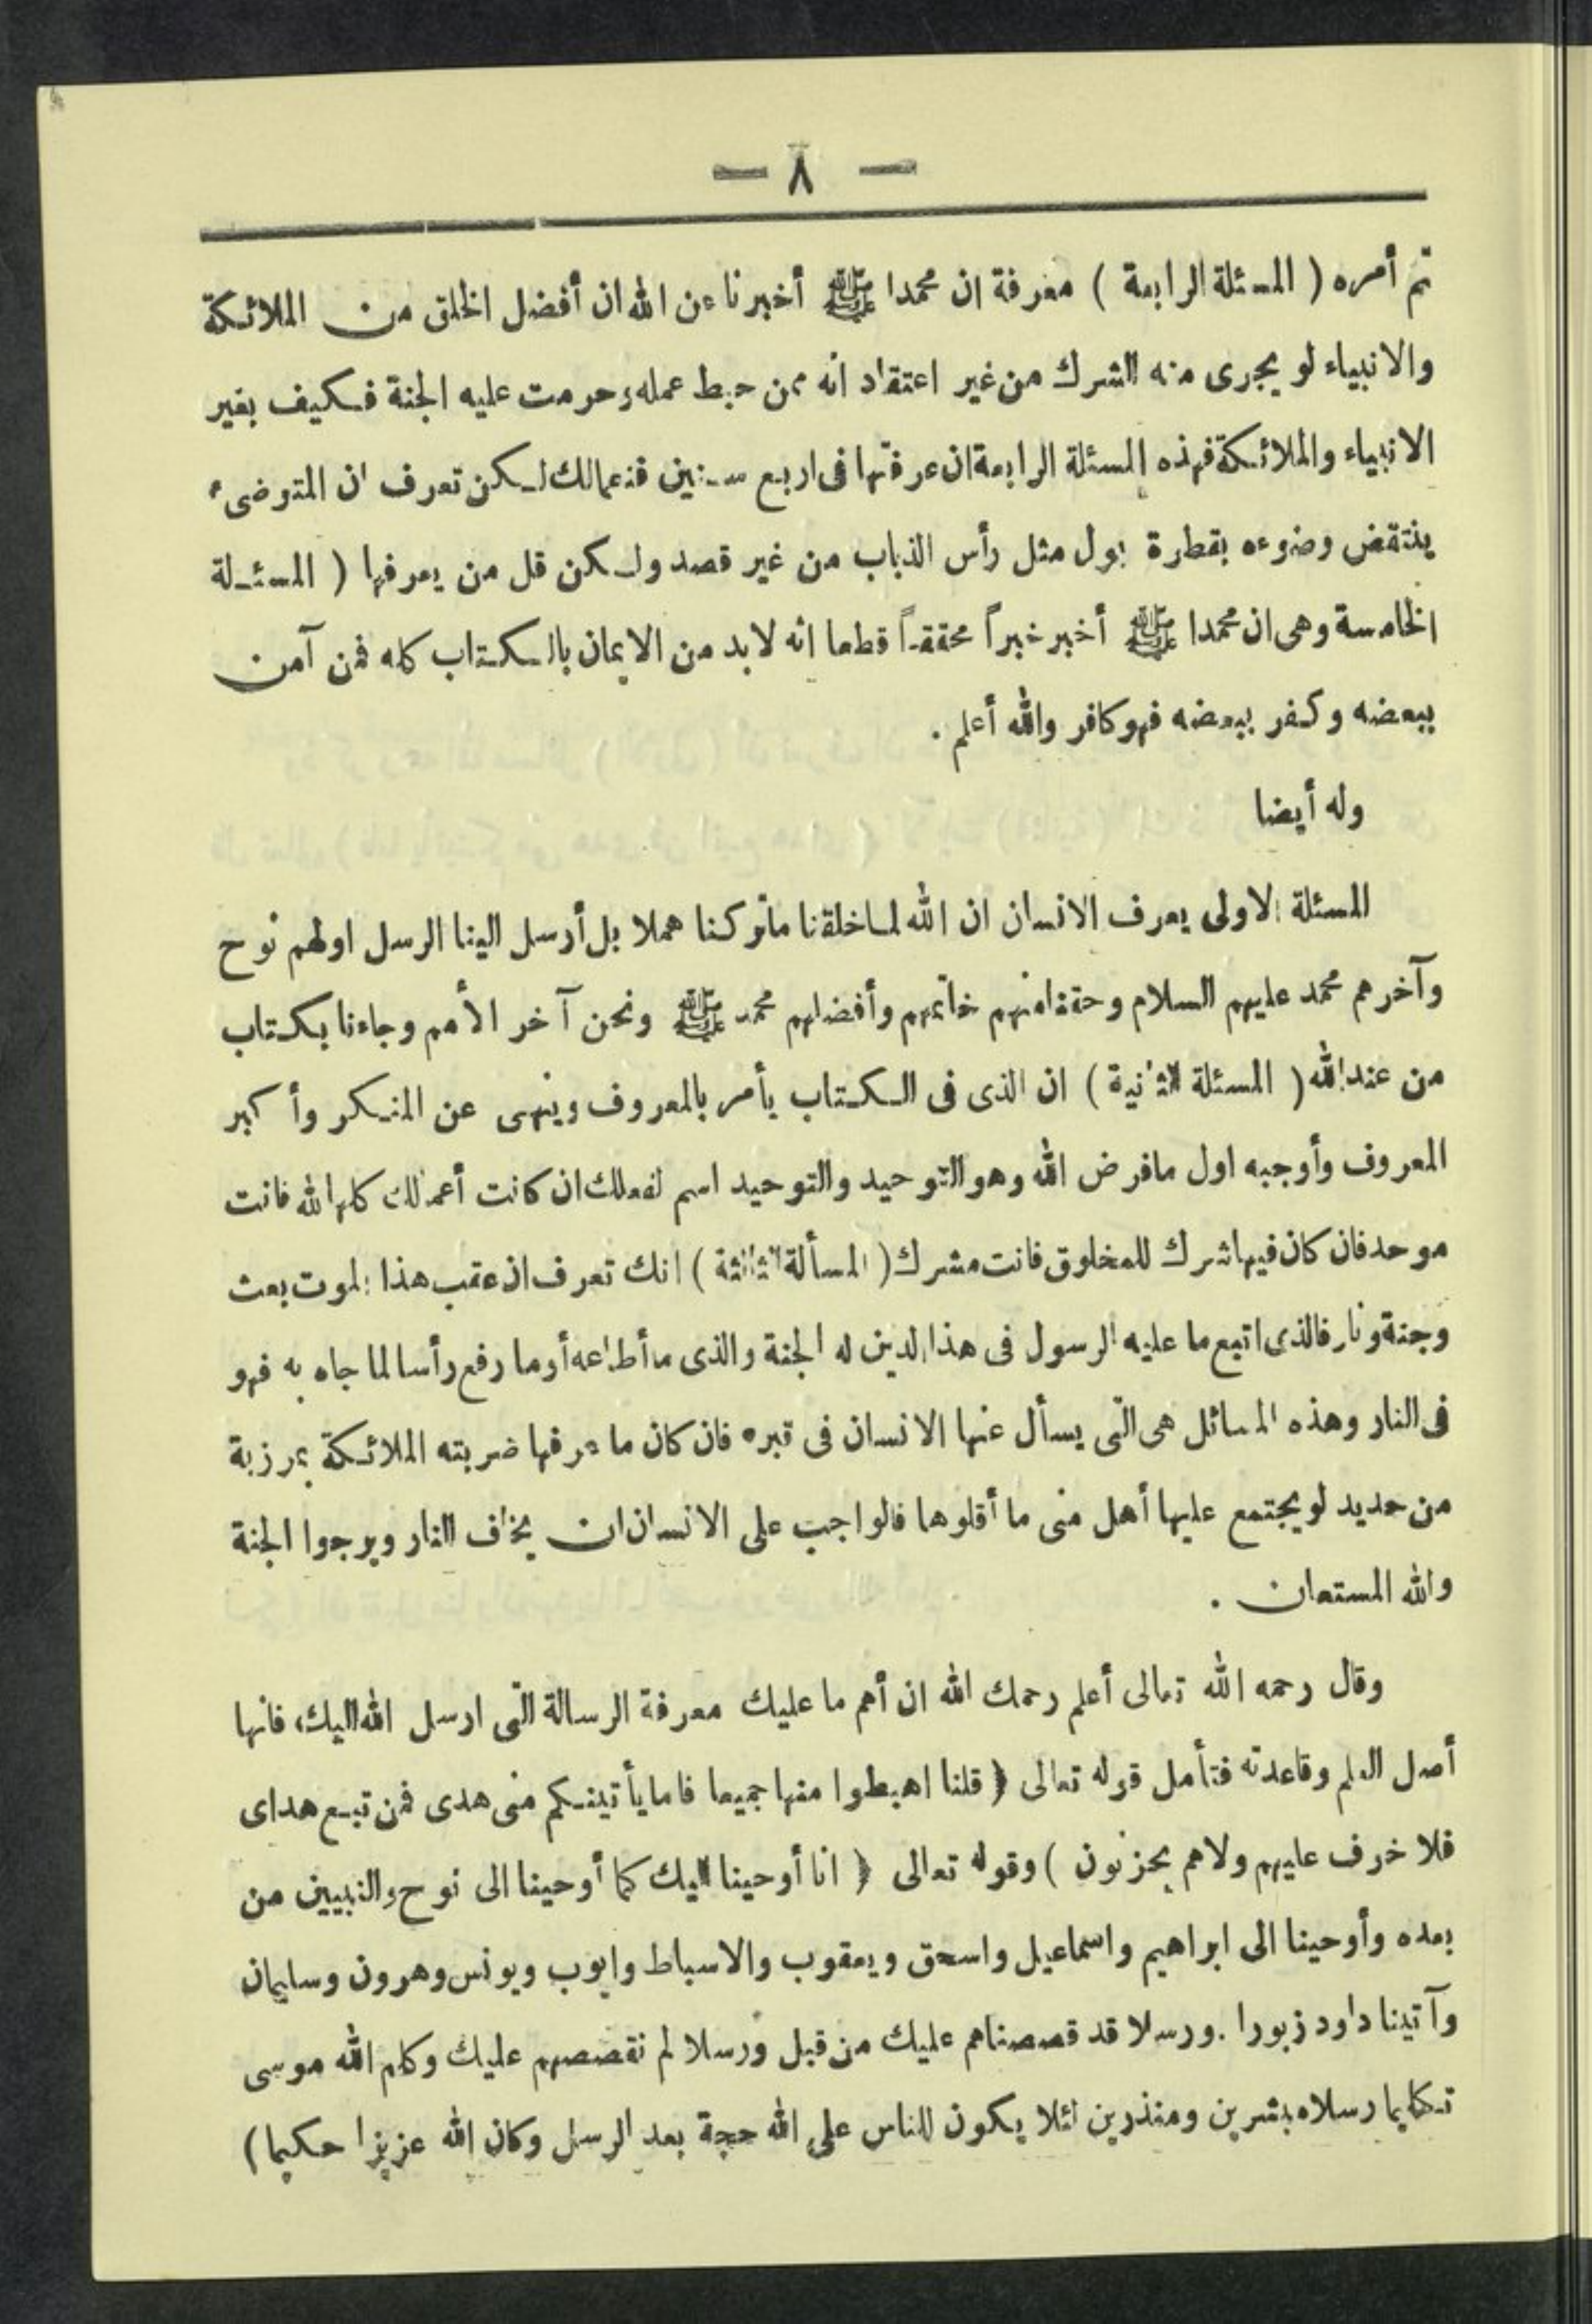 — ٨ —
تم أمره ( المسئلة الرابعة ) معرفة ان محمدا ﷺ أخبرنا عن الله ان أفضل الخلق من الملائكة
والانبياء لو يجرى منه الشرك من غير اعتقاد انه ممن حبط عمله وحرمت عليه الجنة فكيف بغير
الانبياء والملائكة فهذه المسئلة الرابعة ان عرفتها فى اربع سنين فنعمالك لكن تعرف ان المتوضىء
ينتقض وضوءه بقطرة بول مثل رأس الذباب من غير قصد ولكن قل من يعرفها ( المسئلة
الخامسة وهى ان محمدا ﷺ أخبر خبراً محققاً قطعا انه لابد من الايمان بالكتاب كله فمن آمن
ببعضه وكفر ببعضه فهو كافر والله أعلم .
وله أيضا
المسئلة الاولى يعرف الانسان ان الله لما خلقنا ماتركنا هملا بل أرسل الينا الرسل اولهم نوح
وآخرهم محمد عليهم السلام وحقنا منهم خاتمهم وأفضلهم محمد ﷺ ونحن آخر الأمم وجاءنا بكتاب
من عند الله ( المسئلة الثانية ) ان الذى فى الكتاب يأمر بالمعروف وينهى عن المنكر وأكبر
المعروف وأوجبه اول مافرض الله وهو التوحيد والتوحيد اسم لفعلك ان كانت أعمالك كلها لله فانت
موحد فان كان فيها شرك للمخلوق فانت مشرك ( المسألة الثالثة ) انك تعرف ان عقب هذا الموت بعث
وجنة ونار فالذى اتبع ما عليه الرسول فى هذا الدين له الجنة والذى ما أطاعه أو ما رفع رأسا لما جاء به فهو
فى النار وهذه المسائل هى التى يسأل عنها الانسان فى قبره فان كان ما عرفها ضربته الملائكة بمرزبة
من حديد لو يجتمع عليها أهل منى ما أقلوها فالواجب على الانسان ان يخاف النار ويرجوا الجنة
والله المستعان .
وقال رحمه الله تعالى أعلم رحمك الله ان أهم ما عليك معرفة الرسالة التى ارسل الله اليك، فانها
أصل العلم وقاعدته فتأمل قوله تعالى ( قلنا اهبطوا منها جميعا فاما يأتينكم منى هدى فمن تبع هداى
فلا خوف عليهم ولا هم يحزنون ) وقوله تعالى ( انا أوحينا اليك كما أوحينا الى نوح والنبيين من
بعده وأوحينا الى ابراهيم واسماعيل واسحق ويعقوب والاسباط وايوب ويونس وهرون وسليمان
وآتينا داود زبورا . ورسلا قد قصصناهم عليك من قبل ورسلا لم نقصصهم عليك وكلم الله موسى
تكليما رسلا مبشرين ومنذرين لئلا يكون للناس على الله حجة بعد الرسل وكان الله عزيزا حكيما )